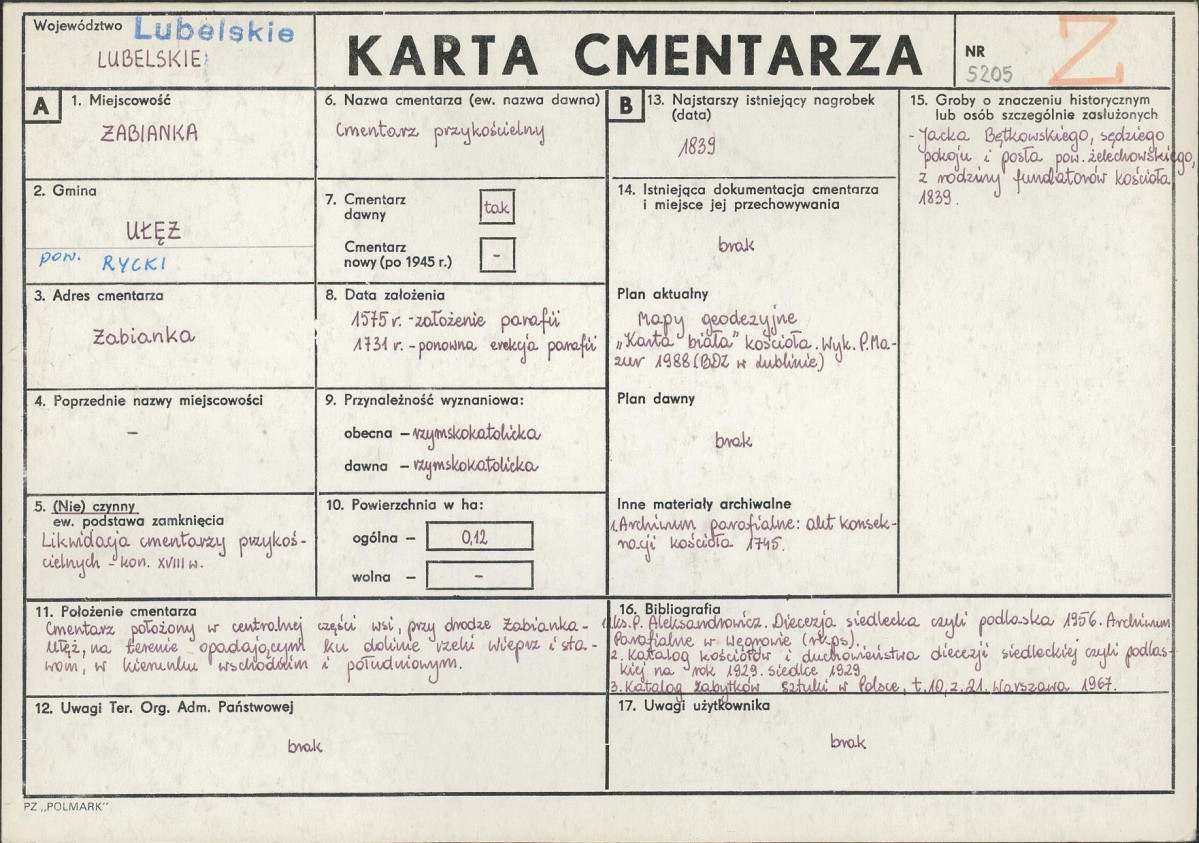 Województwo Lubelskie
LUBELSKIE
KARTA CMENTARZA
NR
5205
Z
A
1. Miejscowość
ŻABIANKA
2. Gmina
UŁĘŻ
pow. RYCKI
3. Adres cmentarza
Żabianka
4. Poprzednie nazwy miejscowości
–
5. (Nie) czynny
ew. podstawa zamknięcia
Likwidacja cmentarzy przykoś-
cielnych - kon. XVIII w.
6. Nazwa cmentarza (ew. nazwa dawna)
Cmentarz przykościelny
7. Cmentarz
dawny
tak
Cmentarz
nowy (po 1945 r.)
-
8. Data założenia
1575 r. - założenie parafii
1731 r. - ponowna erekcja parafii
9. Przynależność wyznaniowa:
obecna – rzymskokatolicka
dawna – rzymskokatolicka
10. Powierzchnia w ha:
ogólna – 0,12
wolna – -
B
13. Najstarszy istniejący nagrobek
(data)
1839
14. Istniejąca dokumentacja cmentarza
i miejsce jej przechowywania
brak
Plan aktualny
Mapy geodezyjne
„Karta biała" kościoła. Wyk. P. Ma-
zur 1988 (BDZ w Lublinie)
Plan dawny
brak
Inne materiały archiwalne
1. Archiwum parafialne: akt konsek-
racji kościoła 1745.
15. Groby o znaczeniu historycznym
lub osób szczególnie zasłużonych
- Jacka Bętkowskiego, sędziego
pokoju i posła pow. żelechowskiego,
z rodziny fundatorów kościoła
1839.
11. Położenie cmentarza
Cmentarz położony w centralnej części wsi, przy drodze Żabianka -
Ułęż, na terenie opadającym ku dolinie rzeki Wieprz i sta-
wom, w kierunku wschodnim i południowym.
12. Uwagi Ter. Org. Adm. Państwowej
brak
16. Bibliografia
1. ks. P. Aleksandrowicz. Diecezja siedlecka czyli podlaska 1956. Archiwum
Parafialne w Węgrowie (rkps).
2. Katalog kościołów i duchowieństwa diecezji siedleckiej czyli podlas-
kiej na rok 1929. Siedlce 1929
3. Katalog Zabytków Sztuki w Polsce, t. 10, z. 21. Warszawa 1967.
17. Uwagi użytkownika
brak
PZ „POLMARK"